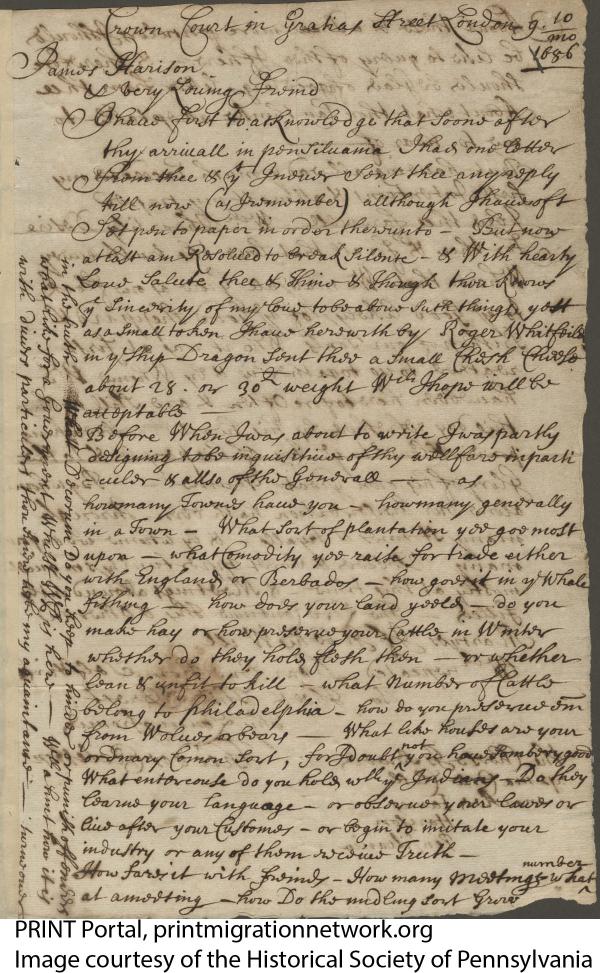 Crown Court in Gratias Street London 9 10
mo
1686
James Harison
& very Loving Freind
I haue first to acknowledge that soone after
thy arrivall in pensilvania I had one letter
from thee & I never sent thee any reply
till now (as I remember) allthough I haue oft
Set pen to paper in order therunto – But now
at last am Resolved to break Silence – & With hearty
Loue Salute thee & thine & though thou knows
ye Sincerity of my loue to be aboue such things yett
as a Small token I haue herewith by Roger
in ye Ship Dragon Sent thee a Small Chesh Cheese
about 28. or 30 weight Wch I hope will be
acceptable –
Before When I was about to write I was partly
designing to be inquisitiue of thy wellfare in parti
culer & allso of the Generall – as
how many Townes haue you – how many generally
in a Town – What Sort of plantation yee goe most
upon – what Comodity yee raise for trade either
with England or Berbados – how goes it in ye Whale
fishing – how does your land yeeld – do you
make hay or how preserve your Cattle in Winter
whether do they hold flesh then – or whether
lean & unfit to kill – what Number of Cattle
belong to philadelphia – how do you preserve em
from Wolves or bears – What like houses are your
ordnary Comon Sort, for I doubt not you haue Som very good
What entercouse do you hold wth ye Indians – Do they
learne your language – or observe your lawes or
liue after your Customes – or begin to imitate your
industry or any of them receive Truth –
How fares it with freinds – How many Meetings what number
at a meeting – how Do the midling Sort Grow
in the truth What Decorum Do you keep to hinder or punish offenders
what like for a Government What is here – Will a hint how it is
with divers particulers thou knows of my aquaintance – turne over
PRINT Portal, printmigrationnetwork.org
Image courtesy of the Historical Society of Pennsylvania